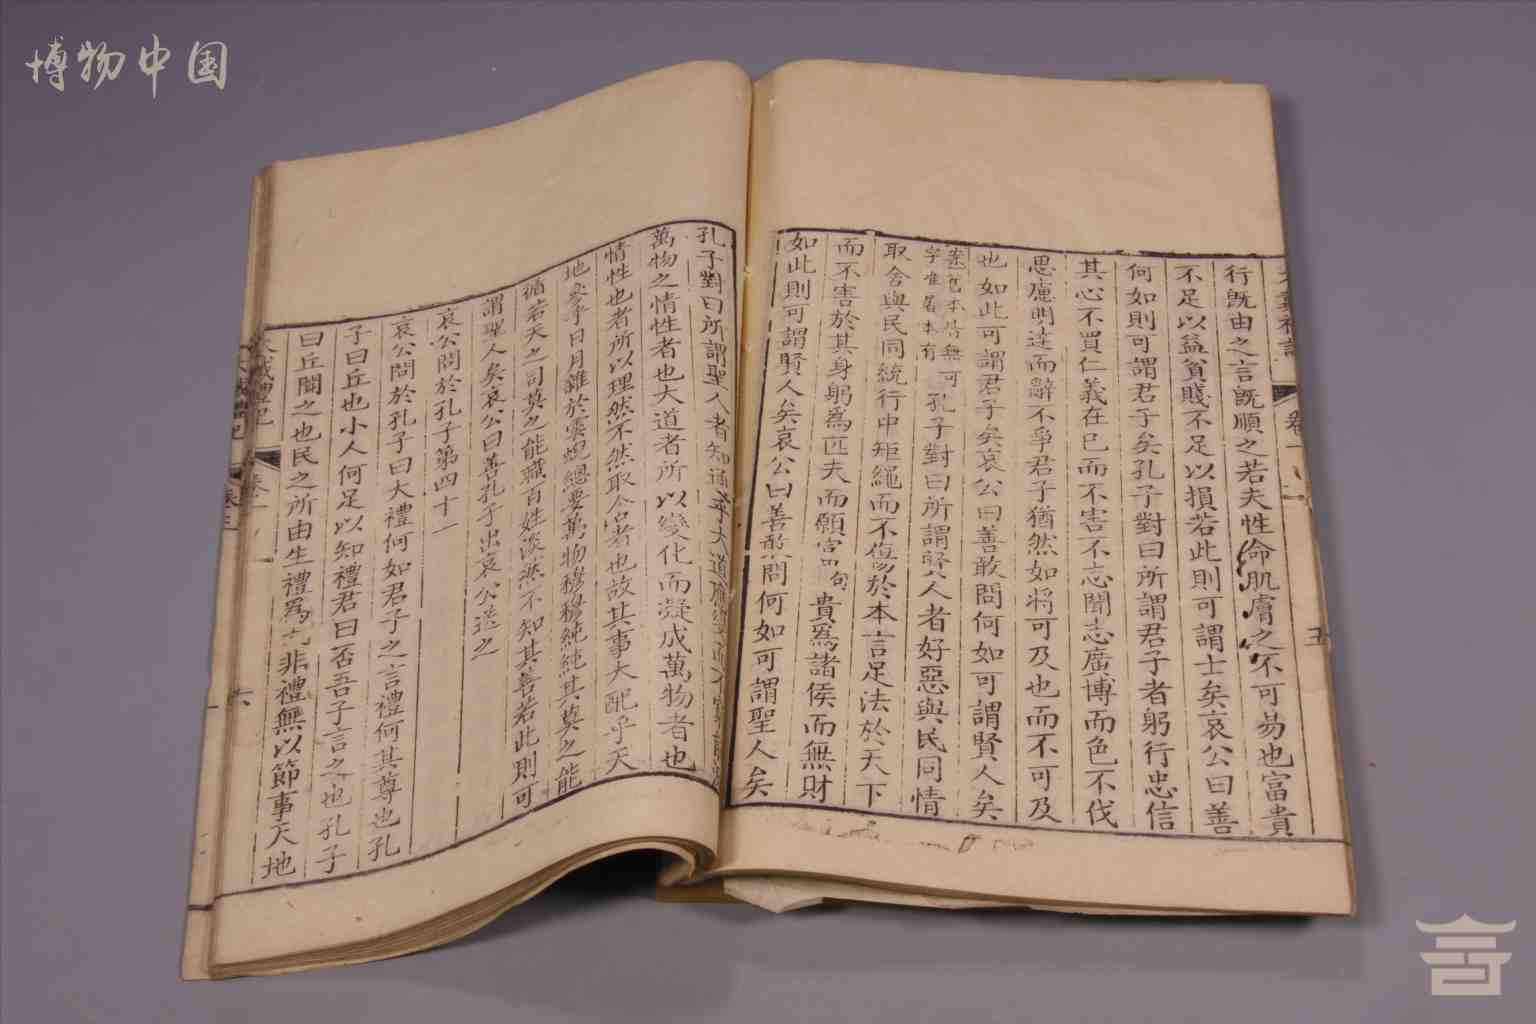 博物中国
大戴禮記
卷一
五
行旣由之言旣順之若夫性命肌膚之不可易也富貴
不足以益貧賤不足以損若此則可謂士矣哀公曰善
何如則可謂君子矣孔子對曰所謂君子者躬行忠信
其心不買仁義在己而不害不志聞志廣博而色不伐
思慮明達而辭不爭君子猶然如將可及也而不可及
也如此可謂君子矣哀公曰善敢問何如可謂賢人矣
案 本皆無可
字惟 本有
孔子對曰所謂賢人者好惡與民同情
取舍與民同統行中矩繩而不傷於本言足法於天下
而不害於其身躬為匹夫而願富 句 貴為諸侯而無財
如此則可謂賢人矣哀公曰善敢問何如可謂聖人矣
孔子對曰所謂聖人者知通乎大道應變而不窮
萬物之情性者也大道者所以變化而凝成萬物者也
情性也者所以理然不然取舍者也故其事大配乎天
地參乎日月雜於雲蜺總要萬物穆穆純純其莫之能
循若天之司莫之能職百姓淡然不知其善若此則可
謂聖人矣哀公曰善孔子出哀公送之
哀公問於孔子第四十一
哀公問於孔子曰大禮何如君子之言禮何其尊也孔
子曰丘也小人何足以知禮君曰否吾子言之也孔子
曰丘聞之也民之所由生禮爲大非禮無以節事天地
大戴禮記
卷一
六